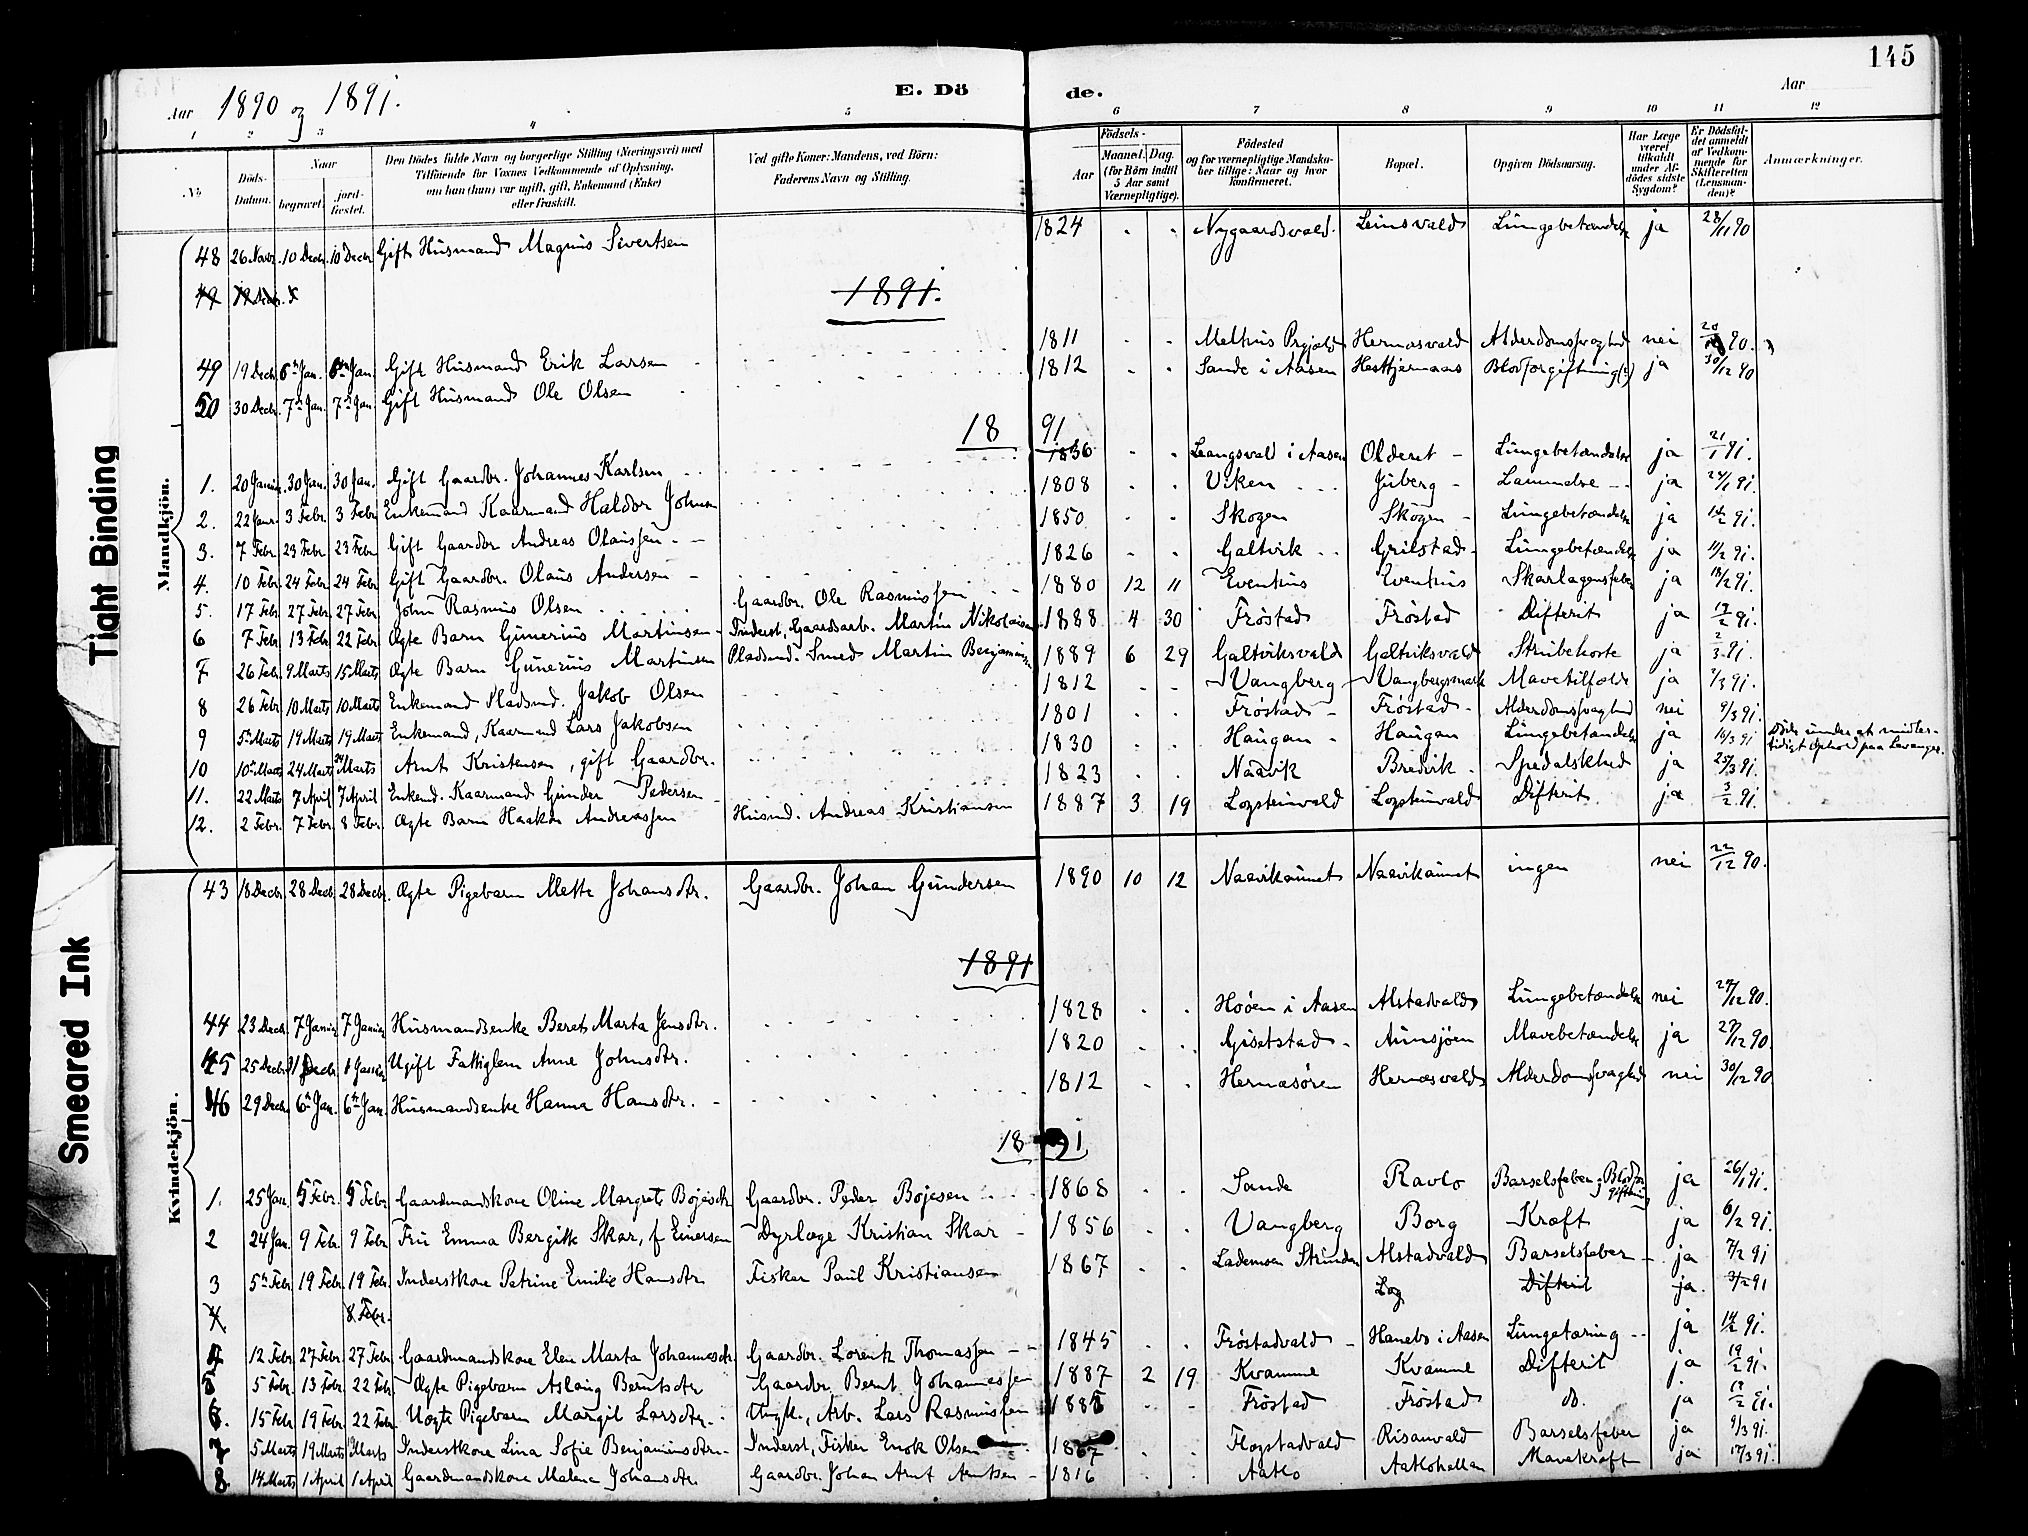 145
Aar 1890 og 1891. E. Dö de. Aar
1 2 3 4 5 6 7 8 9 10 11 12
No Döds-Datum. Naar begravet. jordfæstet. Den Dödes fulde Navn og borgerlige Stilling (Næringsvei) med Tilföiende for Voxnes Vedkommende af Oplysning, om han (hun) var ugift, gift, Enkemand (Enke) eller fraskilt. Ved gifte Koner: Mandens, ved Börn: Faderens Navn og Stilling. Födsels- Aar Maaned. Dag. (for Börn indtil 5 Aar samt Værnepligtige). Födested og for værnepligtige Mandskaber tillige: Naar og hvor konfirmeret. Bopæl. Opgiven Dödsaarsag. Har Læge været tilkaldt under Afdödes sidste Sygdom? Er Dödsfaldet anmeldt af Vedkommende for Skifteretten (Lensmanden)? Anmærkninger.
Mandkjön.
48 26 Novbr. 10 Decbr. 10 Decbr. Gift Husmand Magnus Sivertsen 1824 Nygaardsvald. Leinsvald Lungebetændelse ja 28/11 90
49 19 Decbr.
1891.
49 19 Decbr. 6te Jan. 6te Jan. Gift Husmand Erik Larsen 1811 Melhus Prgjæld Hernæsvald Alderdomssvaghed nei 20/12 90.
50 30 Decbr. 7de Jan. 7de Jan. Gift Husmand Ole Olsen 1812 Sande i Aasen Hestkjernaas Blodforgiftning(?) ja 30/12 90
1891
1. 20 Januar 30 Jan. 30 Jan. Gift Gaardbr. Johannes Karlsen 1836 Leangsvald i Aasen Olderet Lungebetændelse ja 21/1 91.
2. 22 Janr. 3 Febr. 3 Febr. Enkemand Kaarmand Haldor Johnsen 1808 Viken Juberg Lammelse ja 24/1 91.
3. 7 Febr. 23 Febr. 23 Febr. Gift Gaardbr Andreas Olaussen 1850 Skogen Skogen Lungebetændelse ja 14/2 91.
4. 10 Febr. 24 Febr. 24 Febr. Gift Gaardbr. Olaus Andersen 1826 Galtvik Grilstad Lungebetændelse ja 11/2 91.
5. 17 Febr. 27 Febr. 27 Febr. John Rasmus Olsen Gaardbr. Ole Rasmussen 1880 12 11 Eventhus Eventhus Skarlagensfeber ja 18/2 91.
6 7 Febr. 13 Febr. 22 Febr. Ægte Barn Gunerius Martinsen Inderst, Gaardsarb. Martin Nikolaisen 1888 4 30 Frøstad Frøstad Difterit ja 17/2 91.
7 26 Febr. 9 Marts 15 Marts Ægte Barn Gunerius Martinsen Pladsmd. Smed Martin Benjaminsen 1889 6 29 Galtviksvald Galtviksvald Strubehoste ja 2/3 91.
8 26 Febr. 10 Marts 10 Marts Enkemand Pladsmd. Jakob Olsen 1812 Vangberg Vangbergsmark Mavetilfælde ja 2/3 91.
9 5te Marts 19 Marts 19 Marts Enkemand, Kaarmand Lars Jakobsen 1801 Frøstad Frøstad Alderdomssvaghed nei 9/3 91.
10 10de Marts 24 Marts 24 Marts Arnt Kristensen, gift Gaardbr. 1830 Haugan Haugan Lungebetændelse ja 16/3 91 Døde under et midlertidigt Ophold paa Levanger.
11. 22 Marts 7 April 7 April Enkemd. Kaarmand Gunder Pedersen 1823 Naavik Bredvik Spedalskhed ja 25/3 91.
12. 2 Febr. 7 Febr. 8 Febr. Ægte Barn Haakon Andreassen Husmd. Andreas Kristiansen 1887 3 19 Logsteinvald Logsteinvald Difterit. ja 3/2 91.
Kvindekjön.
43 18 Decbr. 28 Decbr. 28 Decbr. Ægte Pigebarn Mette Johansdtr. Gaardbr. Johan Gundersen 1890 10 12 Naavikaunet Naavikaunet ingen nei 22/12 90.
1891
44 23 Decbr. 7 Januar 7 Januar Husmandsenke Beret Marta Jensdtr. 1828 Hoøen i Aasen Alstadvald Lungebetændelse nei 27/12 90.
45 25 Decbr. 31 Decbr. 1 Januar Ugift Fattiglem Anne Johnsdtr. 1820 Gisetstad Aunsjøen Mavebetændelse ja 27/12 90.
46 29 Decbr. 6te Jan. 6te Jan. Husmandsenke Hanna Hansdtr. 1812 Hernæsøren Hernæsvald Alderdomssvaghed nei 30/12 90
1891
1. 25 Jan. 5 Febr. 5 Febr. Gaardmandskone Oline Margret Bojesdtr. Gaardbr. Peder Bojesen 1868 Sande Ravlo Barselsfeber, Blodforgiftning ja 26/1 91.
2 24 Jan. 9 Febr. 9 Febr. Fru Emma Bergitte Skar, f. Einersen Dyrlæge Kristian Skar 1856 Vangberg Borg Kræft ja 6/2 91.
3 5te Febr. 19 Febr. 19 Febr. Inderstkone Petrine Emilie Hansdtr Fisker Paul Kristiansen 1867 Lademoen Strinden Alstadvald Barselsfeber ja 7/2 91
4 8 Febr. Log Difterit ja. 3/2 91
4 12 Febr. 27 Febr. 27 Febr. Gaardmandskone Elen Marta Johannesdtr. Gaardbr. Lorents Thomassen 1845 Frøstadvald Hanebo i Aasen Lungetæring ja 14/2 91.
5 5 Febr. 13 Febr. 22 Febr. Ægte Pigebarn Aslaug Berntsdtr Gaardbr. Bernt Johannessen 1887 2 19 Kvamme Kvamme Difterit ja 19/2 91.
6. 15 Febr. 19 Febr. 22 Febr. Uægte Pigebarn Margit Larsdtr. Ungk., Arb. Lars Rasmussen 1888 Frøstad Frøstad do. ja 17/2 91.
7 5 Marts 19 Marts 19 Marts Inderstkone Lina Sofie Benjaminsdtr. Inderst, Fisker Enok Olsen 1867 Flogstadvald Risanvald Barselsfeber ja 9/3 91.
8. 14 Marts 1 April 1 April Gaardmandskone Malena Johansdtr Gaardbr. Johan Arnt Arntsen 1816 Aatlo Aatlohallan Mavekræft ja 17/3 91.
Tight Binding
Smeared Ink